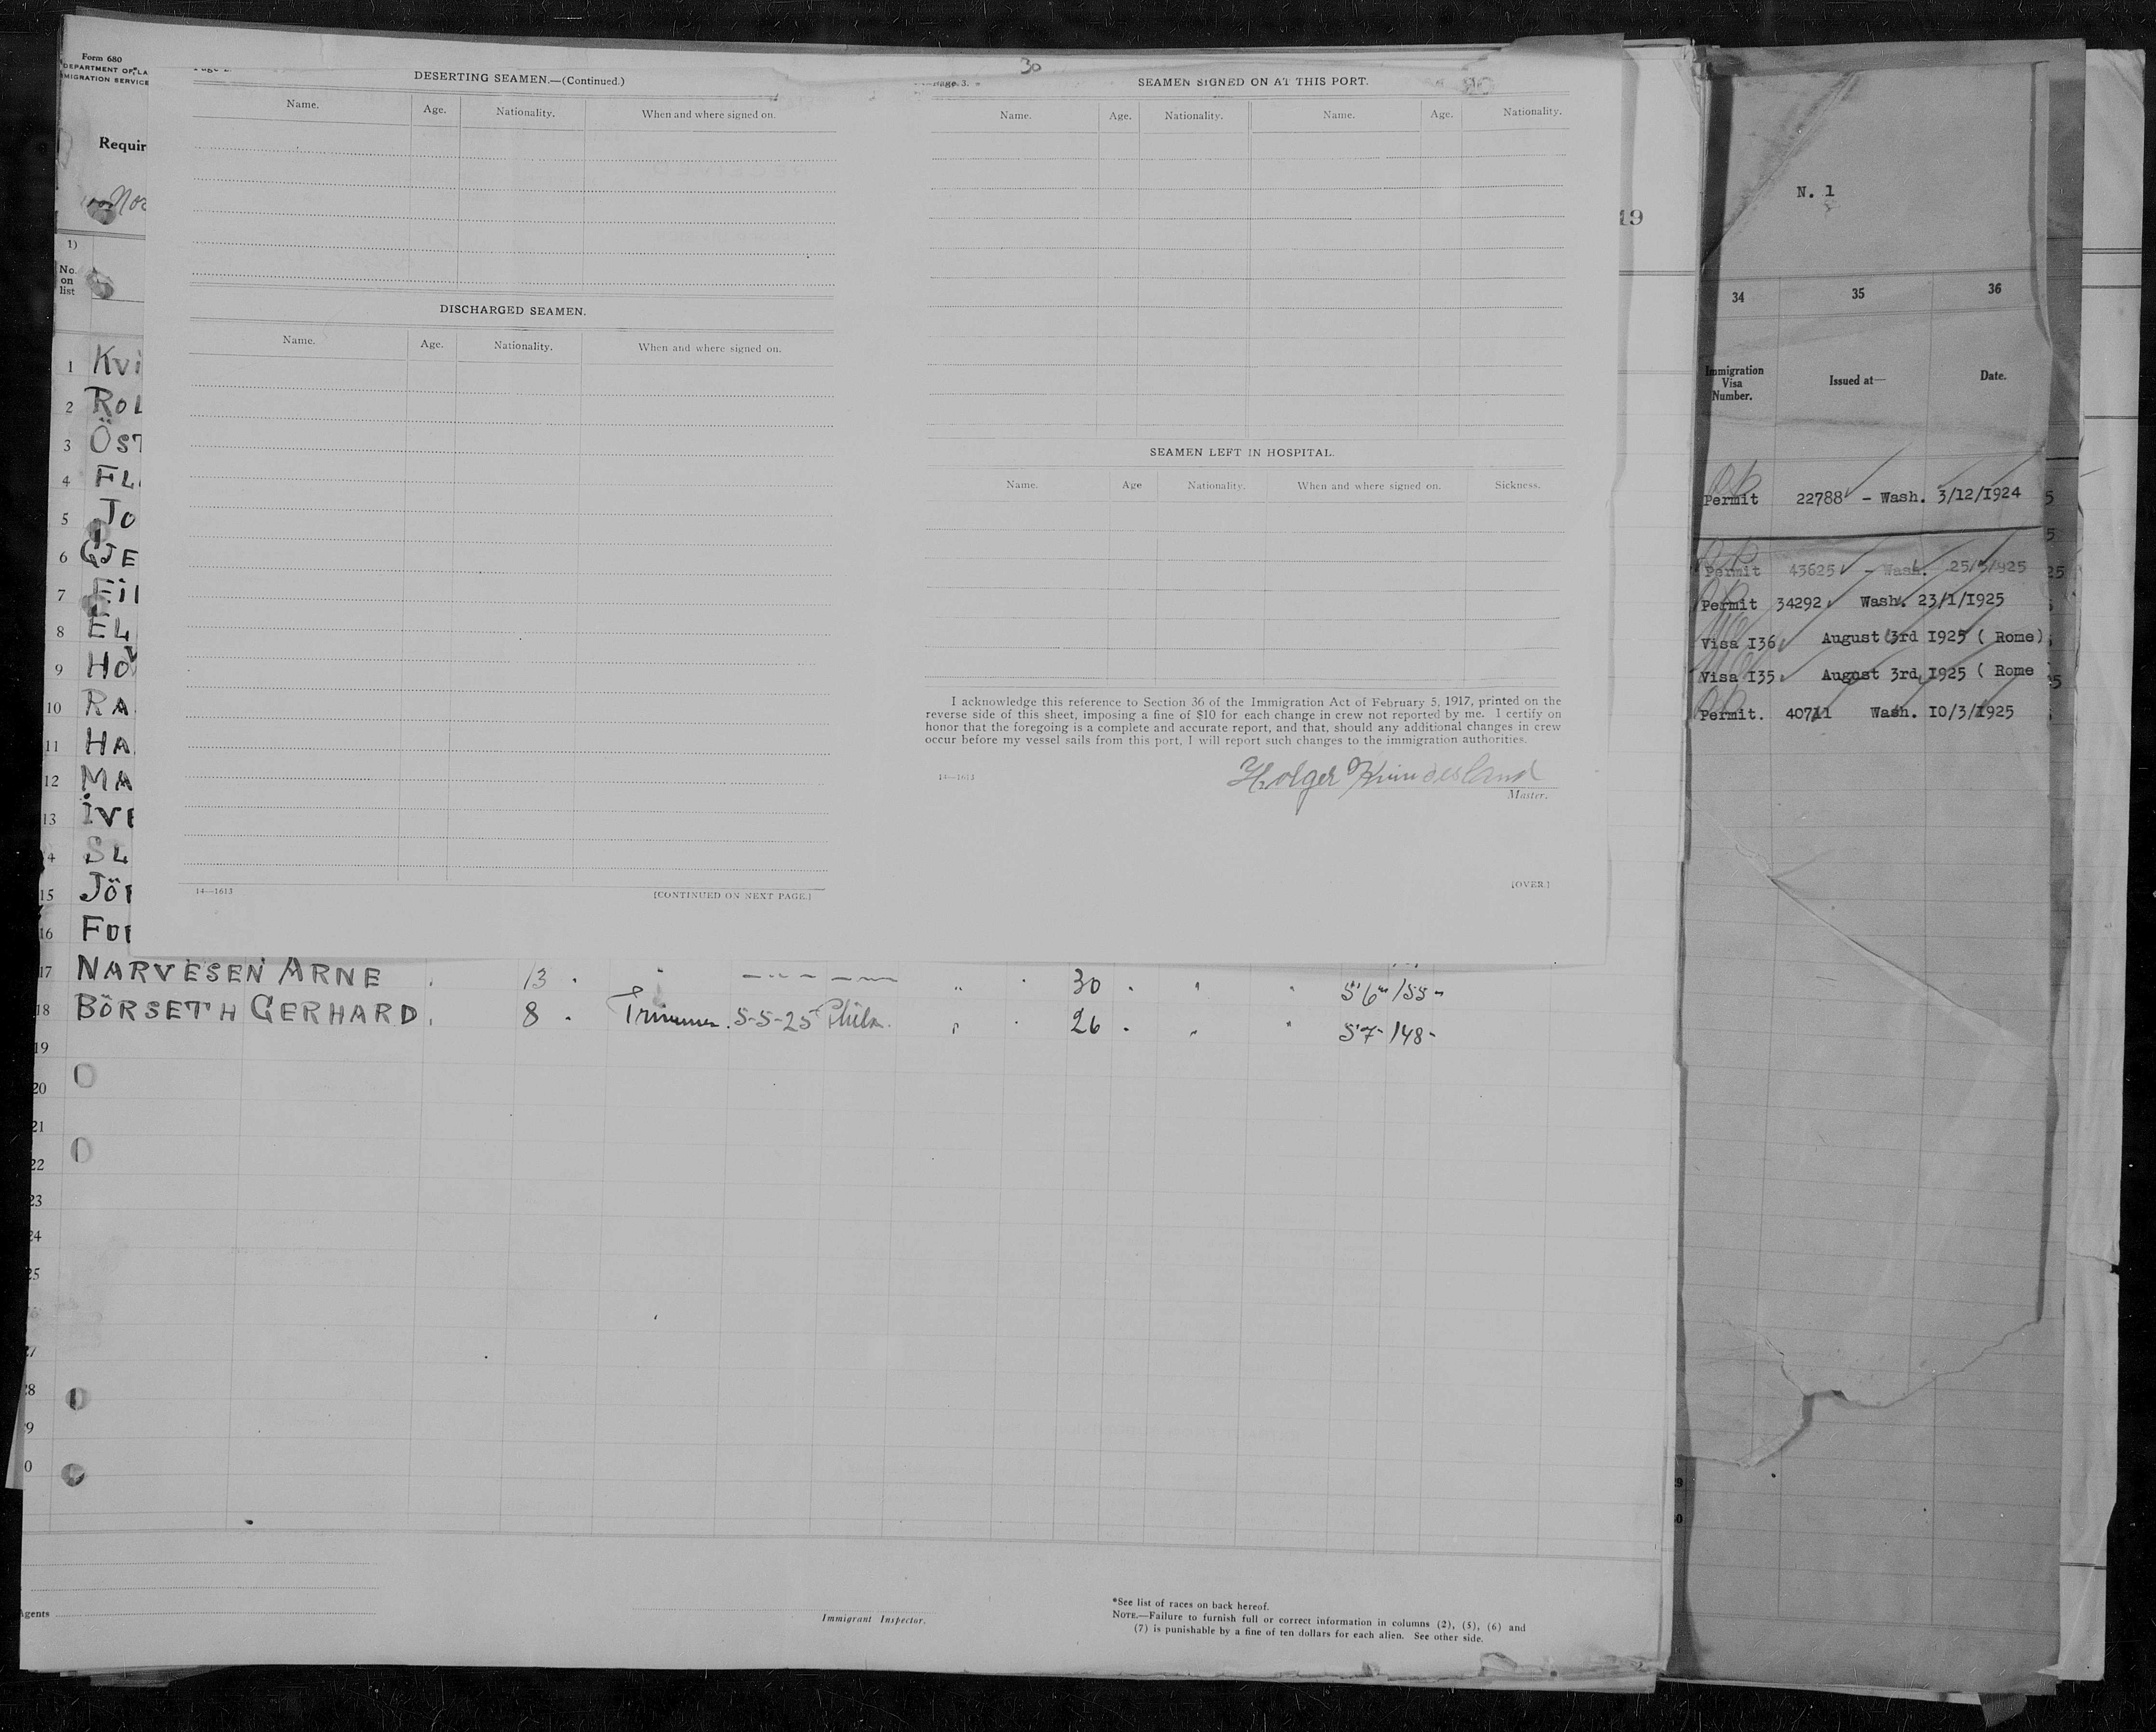 Form 680
DEPARTMENT OF LA
MIGRATION SERVICE
Requir
1)
No.
on
list
1 Kvi
2 ROL
3 ÖST
4 FL
5 Jo
6 GJE
7 Eil
8 EL
9 Ho
10 RA
11 HA
12 MA
13 IVE
4 SL
15 JÖR
16 FUR
30
DESERTING SEAMEN.—(Continued.)
Name. Age. Nationality. When and where signed on.
DISCHARGED SEAMEN.
Name. Age. Nationality. When and where signed on.
14—1613 [CONTINUED ON NEXT PAGE.]
Page 3. SEAMEN SIGNED ON AT THIS PORT.
Name. Age. Nationality. Name. Age. Nationality.
SEAMEN LEFT IN HOSPITAL.
Name. Age Nationality. When and where signed on. Sickness.
I acknowledge this reference to Section 36 of the Immigration Act of February 5, 1917, printed on the
reverse side of this sheet, imposing a fine of $10 for each change in crew not reported by me. I certify on
honor that the foregoing is a complete and accurate report, and that, should any additional changes in crew
occur before my vessel sails from this port, I will report such changes to the immigration authorities.
14—1613 Holger
Master.
[OVER.]
17 NARVESEN ARNE 13 " — " — — — " 30 " " 5'6" 155 -
18 BÖRSETH GERHARD 8 Trimmer. 5-5-25 Phila. " 26 " " 5'7- 148-
19
20
21
22
23
24
25
27
28
9
0
Agents
Immigrant Inspector.
*See list of races on back hereof.
NOTE.—Failure to furnish full or correct information in columns (2), (5), (6) and
(7) is punishable by a fine of ten dollars for each alien. See other side.
19
N. 1
34 35 36
Immigration
Visa
Number.
Issued at—
Date.
Permit 22788 - Wash. 3/12/1924
Permit 43625 - Wash. 25/ /925
Permit 34292 Wash. 23/1/1925
Visa I36 August 3rd 1925 ( Rome)
Visa I35 August 3rd 1925 ( Rome
Permit. 40711 Wash. 10/3/1925